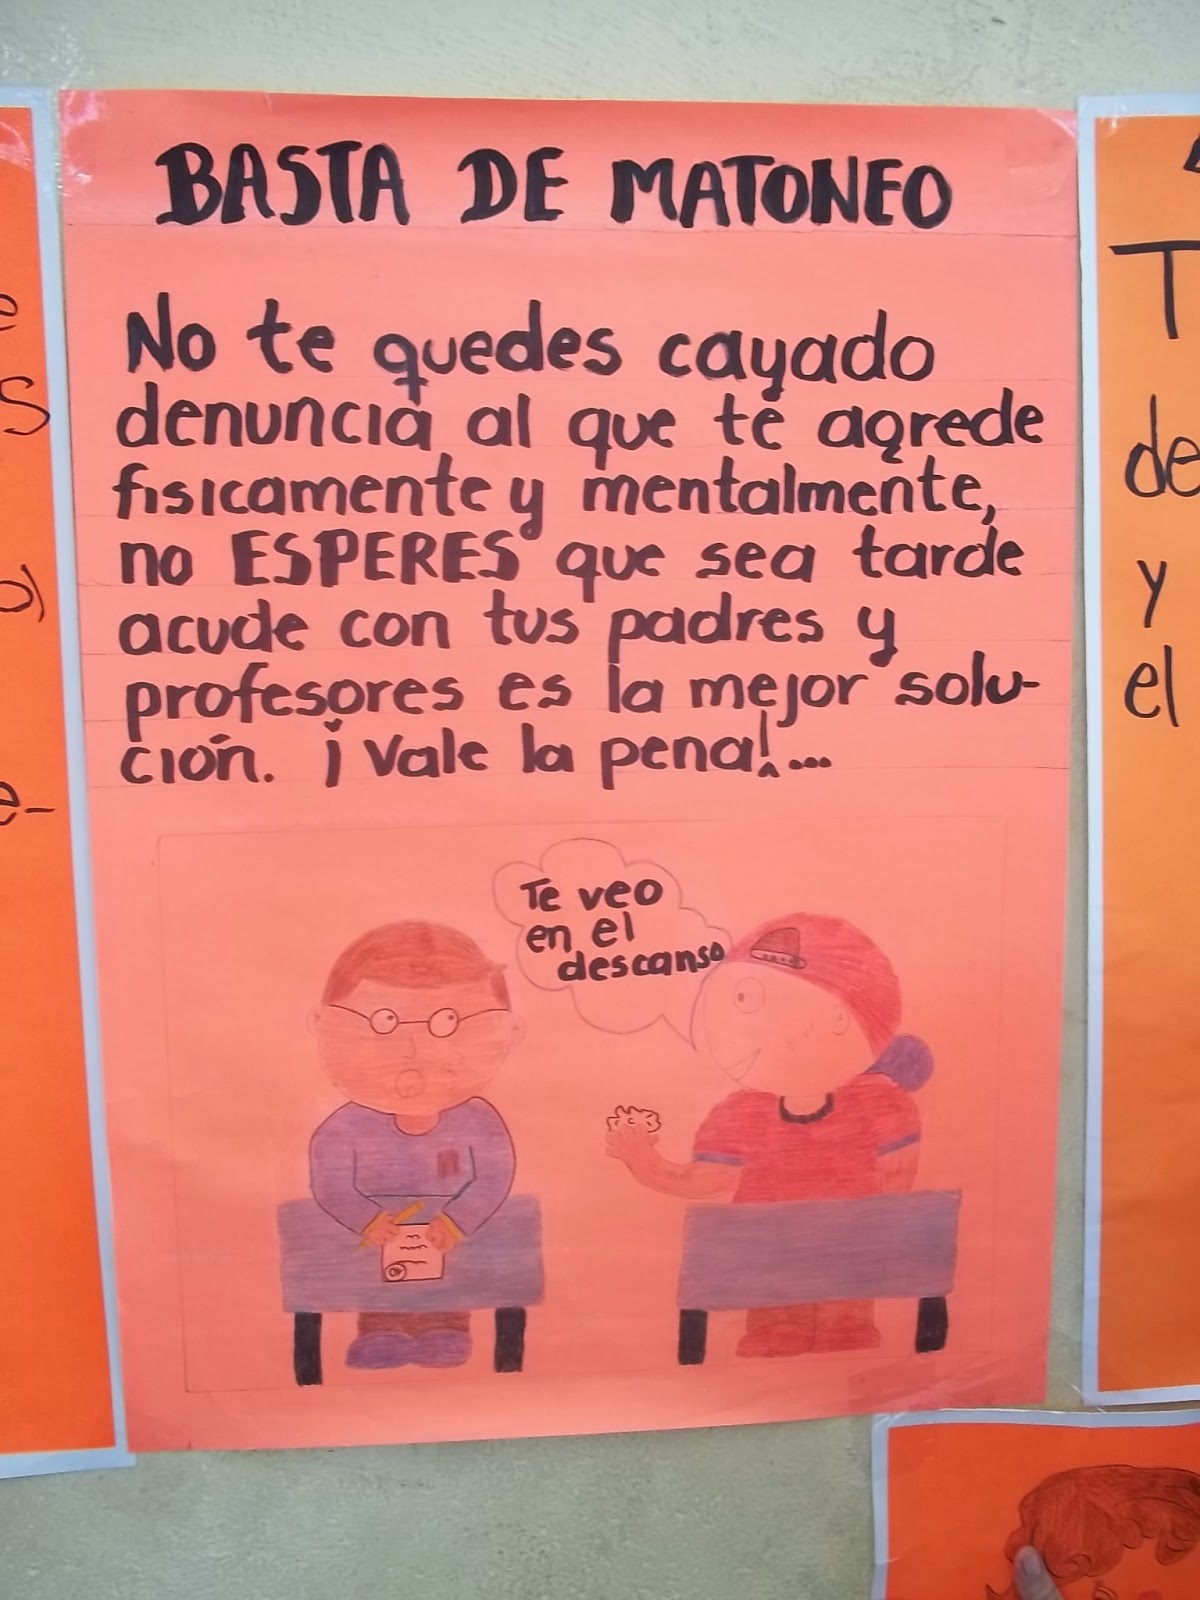 BASTA DE MATONEO
No te quedes cayado
denuncia al que te agrede
fisicamente y mentalmente,
no ESPERES que sea tarde
acude con tus padres y
profesores es la mejor solu-
ción. ¡Vale la pena!...
Te veo
en el
descanso
T
de
y
el